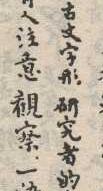 古文字形研究者的
人注意觀察.一